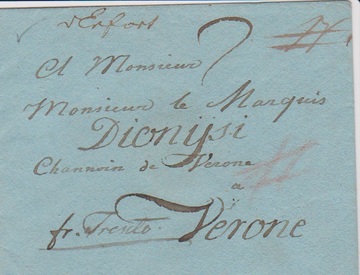 d'Erfort
A Monsieur
Monsieur le Marquis
Dionijsi
Channoin de Verone
a
fr. Trento. Verone